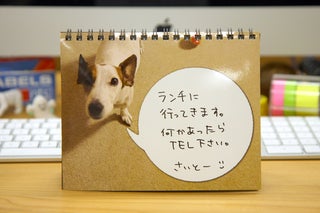 ランチに
行ってきます。
何かあったら
TEL下さい。
さいとー
LABELS